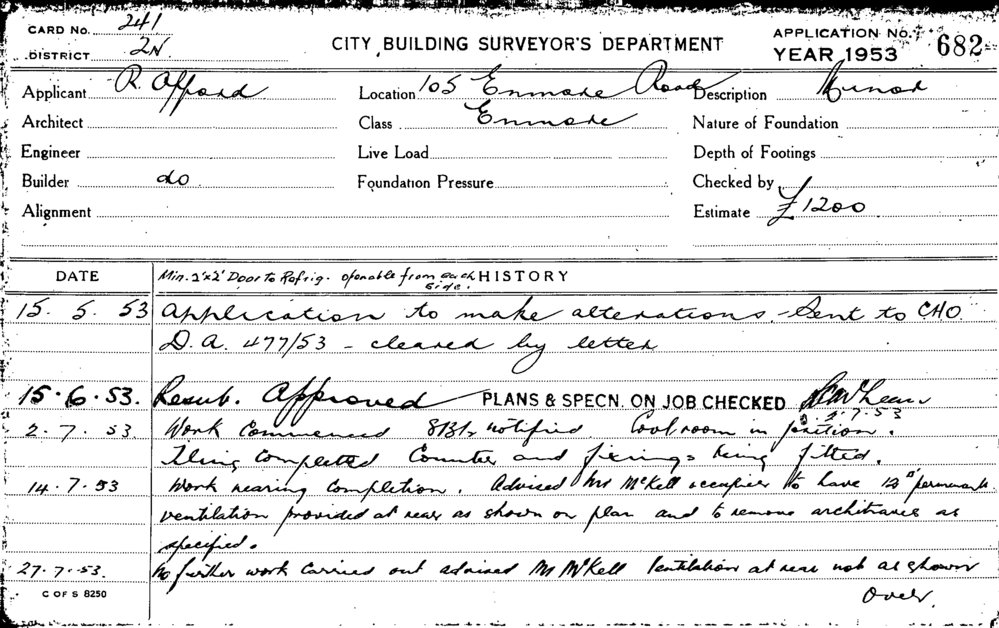 CARD No. 241
DISTRICT 2N
CITY BUILDING SURVEYOR'S DEPARTMENT
APPLICATION No. 682
YEAR 1953
Applicant R. Afford
Location 105 Enmore Road
Description Minor
Architect
Class Enmore
Nature of Foundation
Engineer
Live Load
Depth of Footings
Builder do
Foundation Pressure
Checked by
Alignment
Estimate £1200
DATE
Min. 2'x2' Door to Refrig. openable from each side.
HISTORY
15. 5. 53 Application to make alterations. - Sent to CHO
D.A. 477/53 - cleared by letter
15.6.53. Resub. Approved PLANS & SPECN. ON JOB CHECKED
2.7.53
2.7.53 Work Commenced notified Coolroom in position.
Tiling Completed Counter and fixings being fitted.
14.7.53 Work nearing Completion. Advised Mr McKell occupier to have 12" permanent
ventilation provided at rear as shown on plan and to remove architraves as
specified.
27.7.53. No further work Carried out advised Mr McKell Ventilation at rear not as shown
over.
C OF S 8250